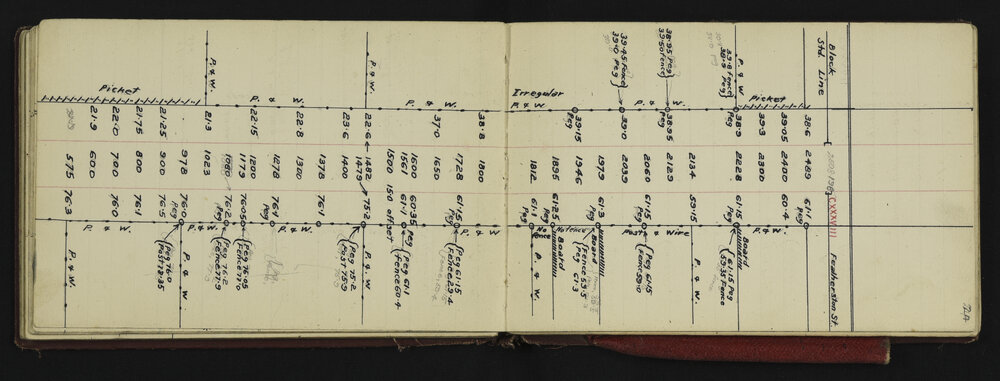 Block
Std. Line
CXXXIII
Featherston St.
2A
38·6
2489
61·1
Peg
39·05
2400
60·4
39·3
2300
Picket
P. & W.
P. & W.
38·9
Peg
2228
61·15
Peg
Board
39·8 Fence
38·9 Peg
61·15 Peg
59·35 Fence
2134
59·15
P. & W.
38·95
Peg
2129
38·95 Peg
39·50 Fence
P. & W.
2060
61·15
Peg
Post & Wire
Peg 61·15
Fence 59·0
39·0
2039
39·45 Fence
39·0 Peg
1979
61·3
Peg
Board
39·15
Peg
1946
No Fence
Fence 59·5
Peg 61·3
1895
61·25
Peg
Board
Irregular
P. & W.
1812
61·1
Peg
No
Fence
P. & W.
38·8
1800
P. & W.
1728
61·15
Peg
Peg 61·15
Fence 59·4
37·0
1650
P. & W.
1600
60·35
1561
61·1
Peg
Peg 61·1
Fence 60·4
1500
150 offset
22·6
1482
1479
75·2
P. & W.
P. & W.
Peg 75·2
Post 75·9
23·6
1400
1378
76·1
22·8
1300
P. & W.
1278
76·1
Peg
22·15
1200
1179
76·05
Peg
Peg 76·05
Fence 77·0
1080
76·2
Peg
Peg 76·2
Fence 77·9
21·3
1023
P. & W.
978
76·0
Peg
P. & W.
Peg 76·0
Post 78·35
21·25
900
76·5
Picket
21·75
800
76·1
22·0
700
76·0
21·9
600
575
76·3
P. & W.